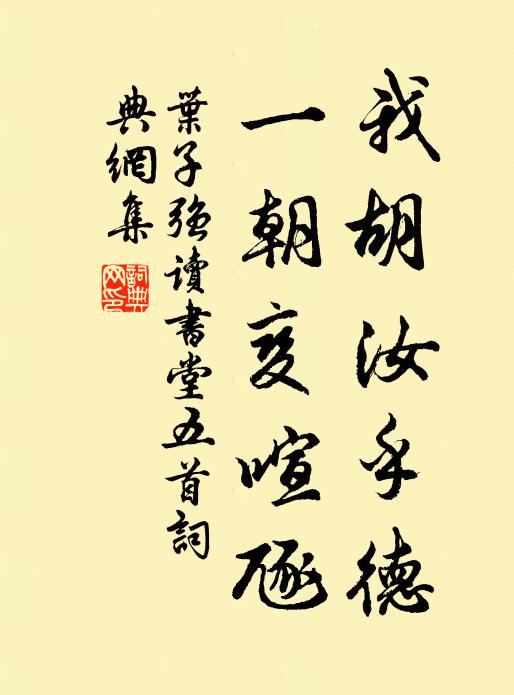 我胡汝乎德
一朝变喧豗
葉子强讀書堂五首詞
典網集
詞典
网印